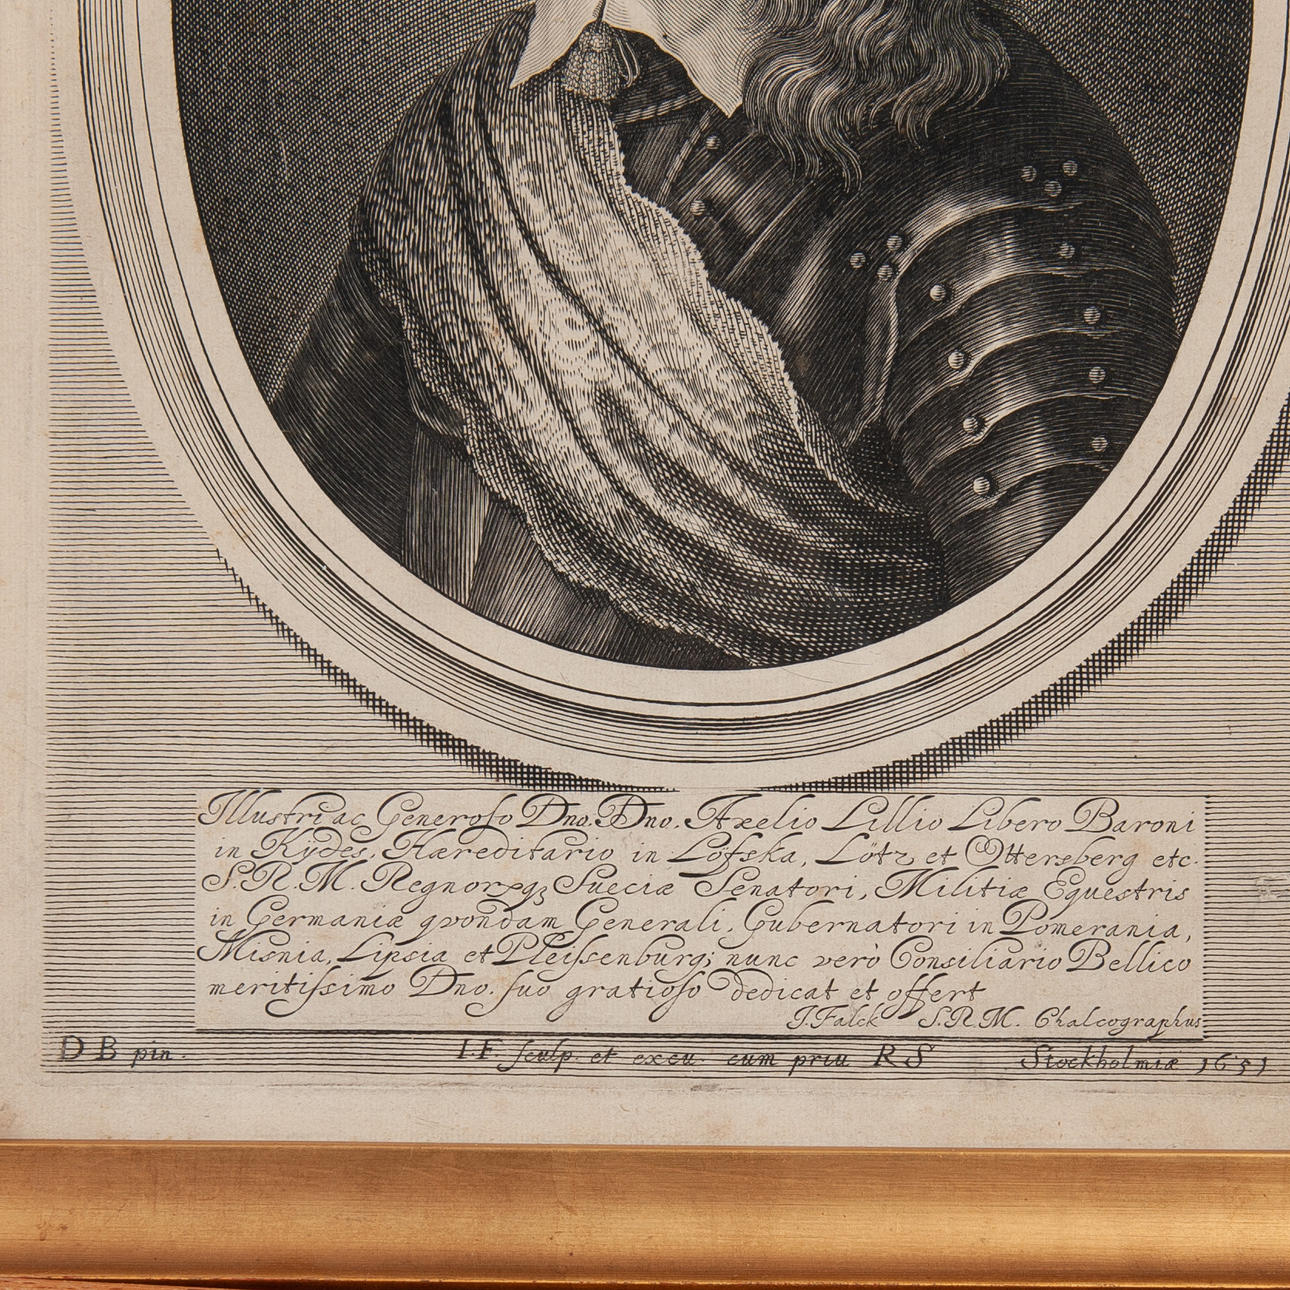 Illustri ac Generoso Dno. Dno. Axelio Lillio Libero Baroni
in Kÿdes, Hæreditario in Löfska, Lötz et Ottersberg etc.
S. R. M. Regnorꝙqꝫ Sueciæ Senatori, Militiæ Equestris
in Germaniæ qvondam Generali, Gubernatori in Pomerania,
Misnia, Lipsia et Pleissenburg; nunc verò Consiliario Bellico
meritissimo Dno. suo gratioso dedicat et offert
J. Falck S. R. M. Chalcographus
D B pin. I. F. sculp. et excu. cum priu R S Stockholmiæ 1651